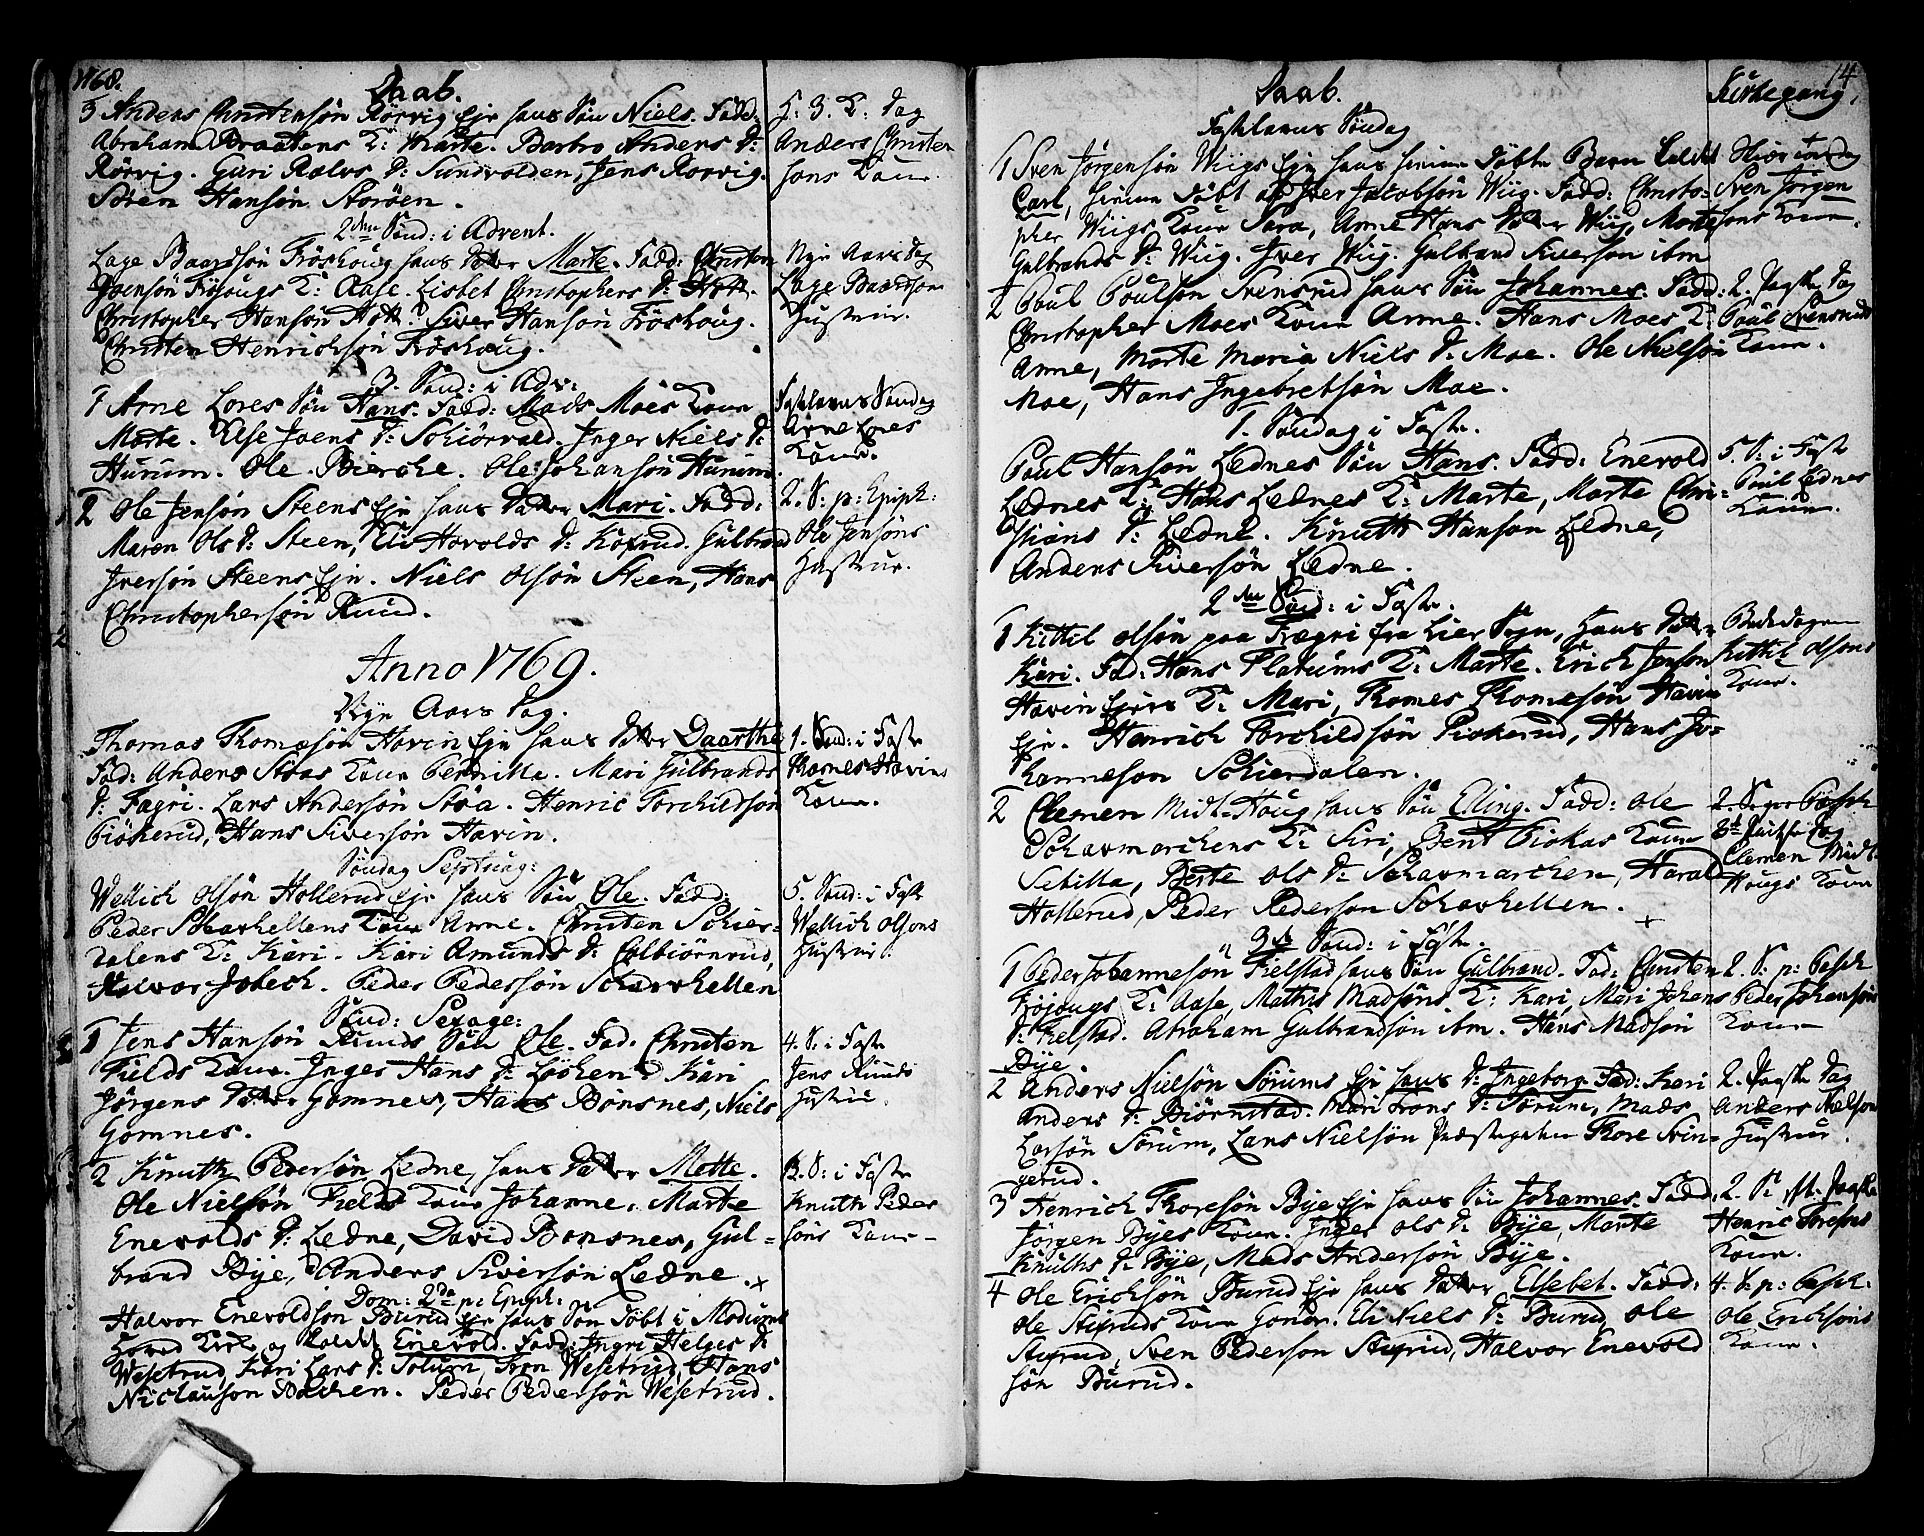 1768.
Daab.
3 Anders Christensøn Rörvig Ejr hans Søn Niels. Fadd:
Abraham Braatens K: Marte. Barbro Anders D:
Rörvig. Guri Rolvs D: Sundvolden, Jens Rörvig.
Sören Hansøn Storöen.
2den Sønd: i Advent.
Lage Baardsøn Fröshoug hans Datter Marte. Fadd: Christen
Joensøn Frösougs K: Aase. Lisbet Christophers D:
Christopher Hansøn. Siver Hansøn Fröshoug.
Christen Henrichsøn Fröshoug.
3. Sønd: i Adv:
1 Arne Lores Søn Hans. Fadd: Mads Moes Kone
Marte. Else Joens D: Schiörvold. Inger Niels D:
Hurum. Ole Bierche. Ole Johansøn Hurum.
2 Ole Jensøn Steens Ejr hans Datter Mari. Fadd:
Maren Ols D: Steen, Eli Havolds D: Koxrud. Gulbrand
Iversøn Steens Ejr. Niels Olsøn Steen, Hans
Christophersøn Ruud.
Anno 1769.
Nye Aars Dag.
Thomas Thomæsøn Havin Ejr hans Datter Daarthe
Fad: Anders Stoas Kone Pernille. Mari Gulbrands
D: Fagri. Lars Andersøn Stöa. Henric Torchildsøn
Piökerud, Hans Siversøn Havin.
Søndag Septuag:
Wellich Olsøn Hollerud Ejr hans Søn Ole. Fadd:
Peder Scharhellens Kone Anne. Christen Schier-
dalens K: Kari. Kari Amunds D: Colbiörnrud,
Halvor Jobech. Peder Pedersøn Scharshellen
Sønd: Sexage:
1 Jens Hansøn Ruuds Søn Ole. Fad. Christen
Fields Kone. Inger Hans D: Löchen Kari
Jørgens Datter Gomnes, Hans Bönsnes, Niels
Gomnes.
2 Knuth Pedersøn Ledne, hans Datter Mette.
Ole Nielsøn Fields Kone Johanne. Marte
Enevolds D: Ledne, David Bonsnes, Gul-
brand Bye, Anders Siversøn Ledne.
Dom: 2da p: Epiph:
Halvor Enevoldsøn Burud Ejr hans Søn Döbt i Modums
Hoved Kirke og kaldet Enevold. Fadd: Ingri Helges D:
Wesetrud, Kari Lars D: Solum, Sven Wesetrud, Hans
Niclausøn Bachen. Peder Pedersøn Wesetrud.
H: 3. K: Dag
Anders Christen
søns Kone.
Nye Aars Dag
Lage Baardsøn
Hustrue.
Fastelavns Søndag
Arne Lores
Kone.
2. S: p: Epiph:
Ole Jensøns
Hustrue.
1. Sønd: i Faste
Thomes Havins
Kone.
5. Sønd: i Faste
Wellich Olsøns
Hustrue.
4. S: i Faste
Jens Ruuds
Hustrue.
3. S: i Faste
Knuth Peder
søns Kone
14
Daab.
Kirkegang.
Fastelavns Søndag
1 Sven Jörgensøn Wiigs Ejr hans hiemme döbte Barn kaldet
Carl, hiemme döbt af Iver Jacobsøn Wiig. Fadd: Christo-
pher Wiigs Kone Sara, Anne Hans Datter Wiig, Marte
Gulbrands D: Wiig. Iver Wiig. Gulbrand Siversøn ibm
2 Poul Poulsøn Svensrud hans Søn Johannes. Fadd:
Christopher Moes Kone Anne. Hans Moes K:
Anne, Marte Maria Niels D: Moe. Ole Nielsøn
Moe, Hans Ingebretsøn Moe.
1. Søndag i Faste.
Poul Hansøn Lednes Søn Hans. Fadd: Enevold
Lednes K: Hans Lednes K: Marte, Marte Chri-
stians D: Ledne. Knuth Hansøn Ledne,
Anders Siversøn Ledne.
2den Sønd: i Faste.
1 Kittil Olsøn paa Fægri fra Lier Sogn, Hans Datter
Kari. Fad: Hans Platums K: Marte. Erich Jensøn
Havin Ejers K: Mari, Thomes Thomesøn Havin
Ejr. Henrich Torchildsøn Piokerud, Hans Jo-
hannesøn Schierdalen.
2 Clemen Midt-Houg hans Søn Elling. Fadd: Ole
Scharmarchens K: Siri, Bent Piokas Kone
Sebilla, Berte Ols D: Scharmarchen, Harald
Hollerud, Peder Pedersøn Scharhellen.
3die Sønd: i Faste.
1 Peder Johannesøn Fielstad hans Søn Gulbrand. Fad: Christen
Fröjougs K: Aase, Mathis Madsøns K: Kari, Mari Johans
D: Fielstad. Abraham Gulbrandsøn ibm. Hans Madsøn
Bye.
2 Anders Nielsøn Sørums Ejr hans D: Ingeborg. Fad: Kari
Anders D: Biörnstad. Mari Frons D: Sorum, Mads
Larsøn Sorum, Lars Nielsøn Præstegaden Thore Svin-
gerud.
3 Henrich Thoresøn Bye Ejr hans Søn Johannes. Fadd:
Jörgen Byes Kone. Inger Ols D: Bye, Marte
Knuths D: Bye, Mads Andersøn Bye.
4 Ole Erichsøn Burud Ejr hans Datter Elsebet. Fadd:
Ole Stixruds Kone Gonor. Eli Niels D: Burud, Ole
Stixrud, Sven Pedersøn Stixrud, Halvor Enevold
søn Burud.
Sven Jörgen
søns Kone.
2. Paaske Dag
Poul Svensruds
Kone.
5. S: i Faste
Poul Lednes
Kone.
Bededagen
Kittil Olsøns
Kone.
2. S: p: Pasch
3die Paaske Dag
Clemen Midt-
Hougs Kone
2. S: p: Pasch
Peder Johansøns
Kone
2. Paaske Dag
Anders Nielsøns
Hustrue.
2. S: eft: Paaske
Henric Thoresøns
Kone.
4. S: p: Pasch:
Ole Erichsøns
Kone.